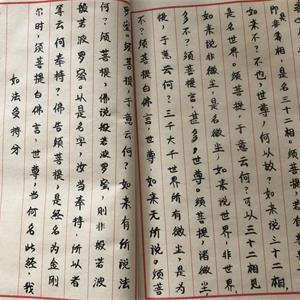 如法受持分
尔时，须菩提白佛言，世尊，当何名此经，我
等云何奉持？佛告须菩提，是经名为金刚
般若波罗蜜。以是名字，汝当奉持。所以者
何？须菩提，佛说般若波罗蜜，则非般若波
罗蜜。须菩提，于意云何？如来有所说法
不？须菩提白佛言，世尊，如来无所说。须菩
提，于意云何？三千大千世界所有微尘，是为
多不？须菩提言，甚多，世尊。须菩提，诸微尘，
如来说非微尘，是名微尘。如来说世界，非世界，
是名世界。须菩提，于意云何？可以三十二相见
如来不？不也，世尊。何以故？如来说三十二相，
即是非相，是名三十二相。